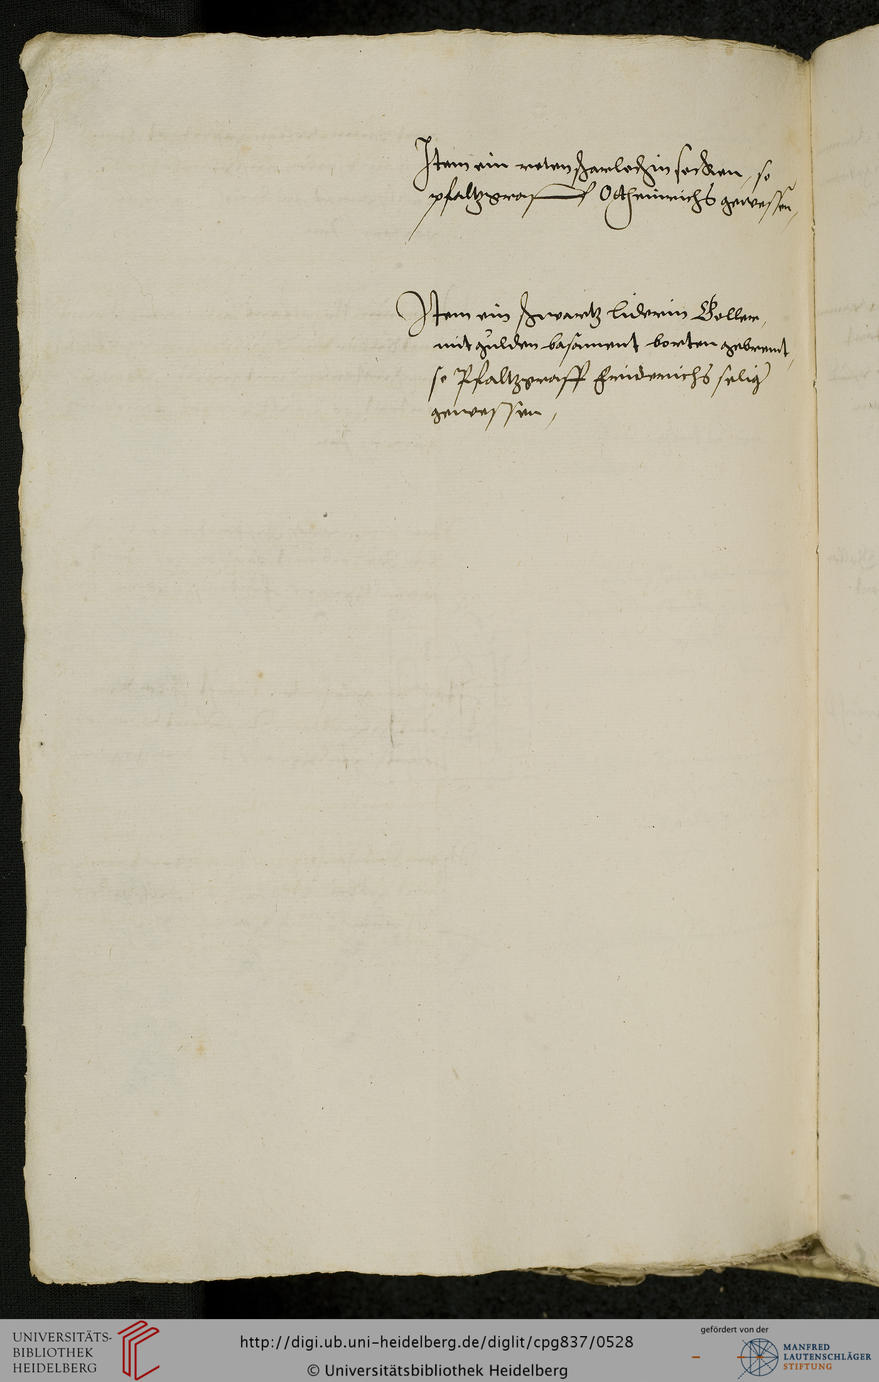 Item ein roten scharlachin socken, so
pfaltzgraff Ottheinrichs gewessen,
Item ein schwartz liderin Goller,
mit gulden basament borten gebremt,
so Pfaltzgraff Friderichs selig
gewessen,
UNIVERSITÄTS-
BIBLIOTHEK
HEIDELBERG
http://digi.ub.uni-heidelberg.de/diglit/cpg837/0528
© Universitätsbibliothek Heidelberg
gefördert von der
MANFRED
LAUTENSCHLÄGER
STIFTUNG